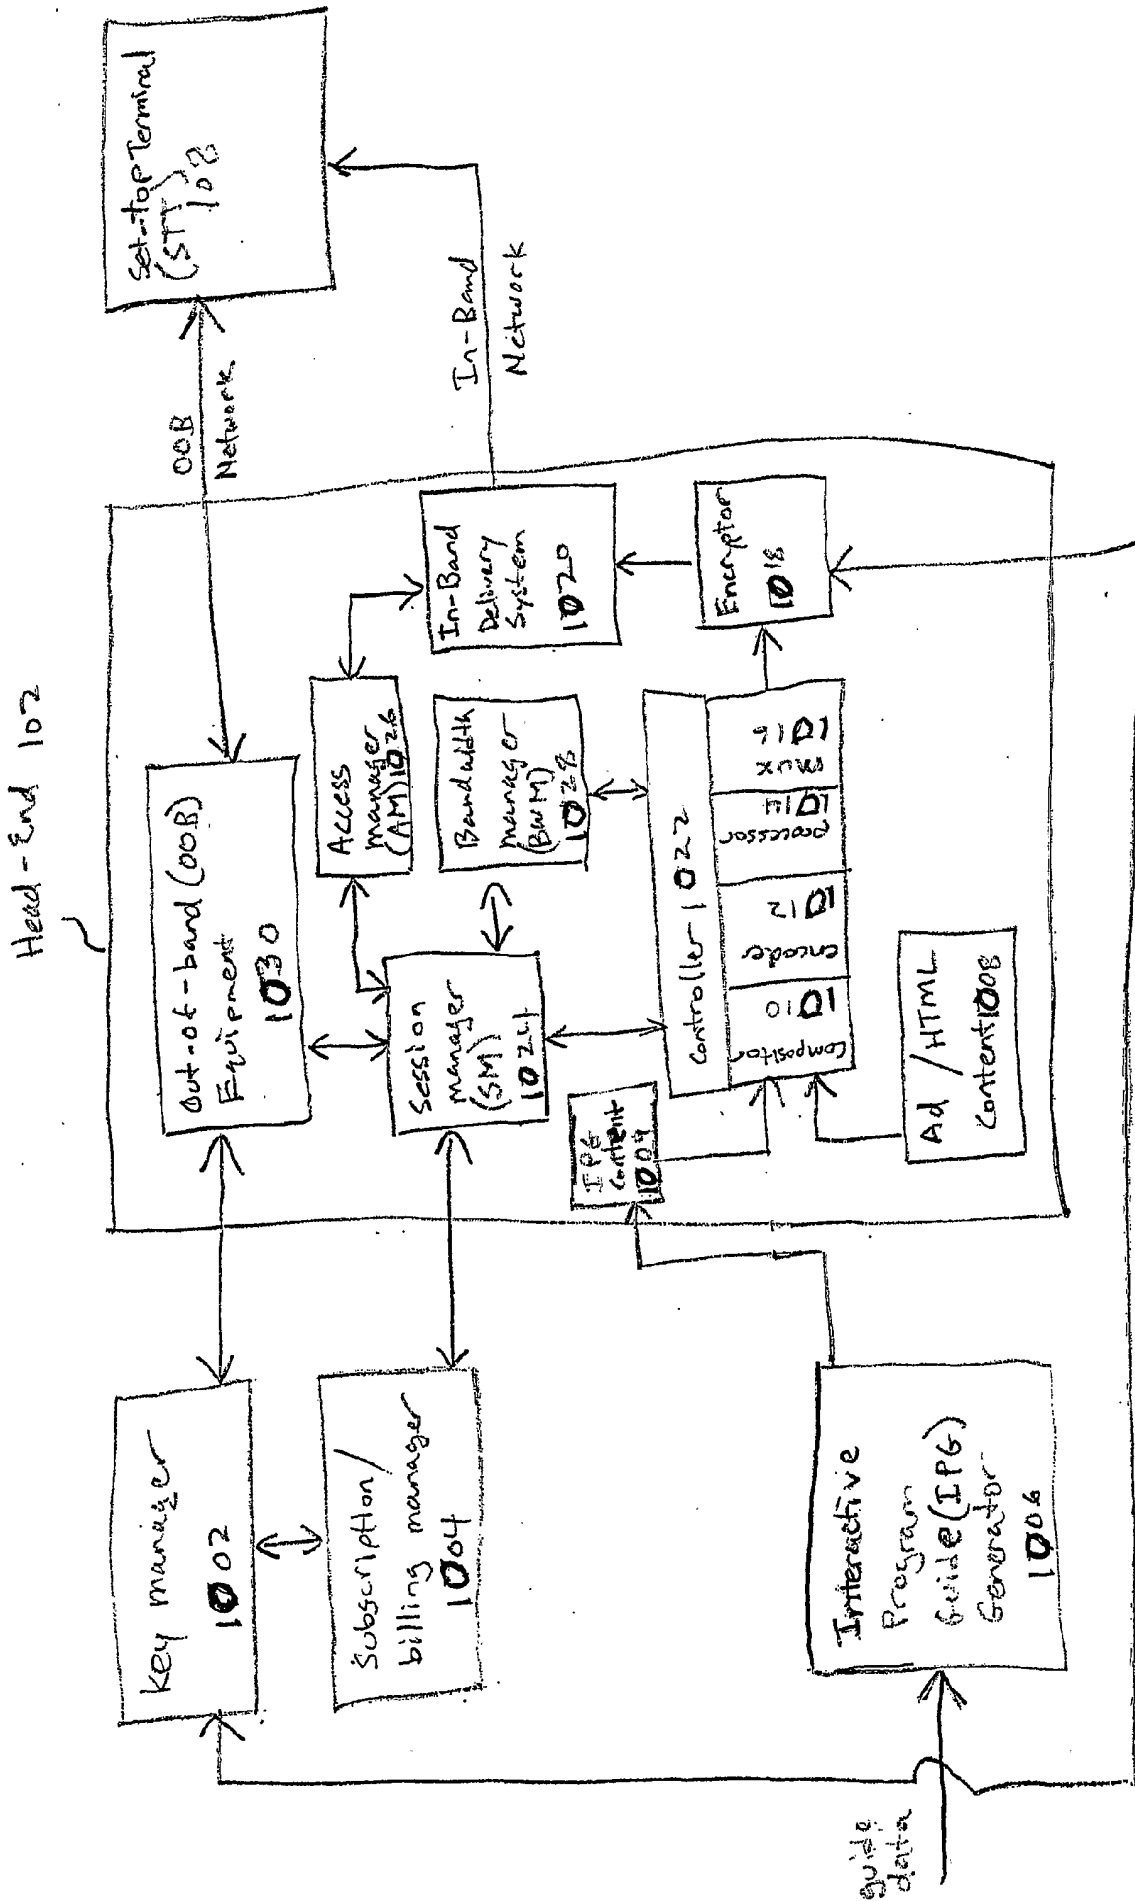 Head-End 102
Key manager
1002
Subscription/
billing manager
1004
Interactive
Program
Guide (IPG)
Generator
1006
guide
data
Out-of-band (OOB)
Equipment
1030
Session
manager
(SM)
1024
Access
manager
(AM) 1026
Bandwidth
manager
(BWM)
1028
In-Band
Delivery
System
1020
Encryptor
1018
Controller 1022
compositor
1010
encoder
1012
processor
1014
mux
1016
IPG
Content
1009
Ad / HTML
Content 1008
OOB
Network
In-Band
Network
Set-top Terminal
(STT)
108